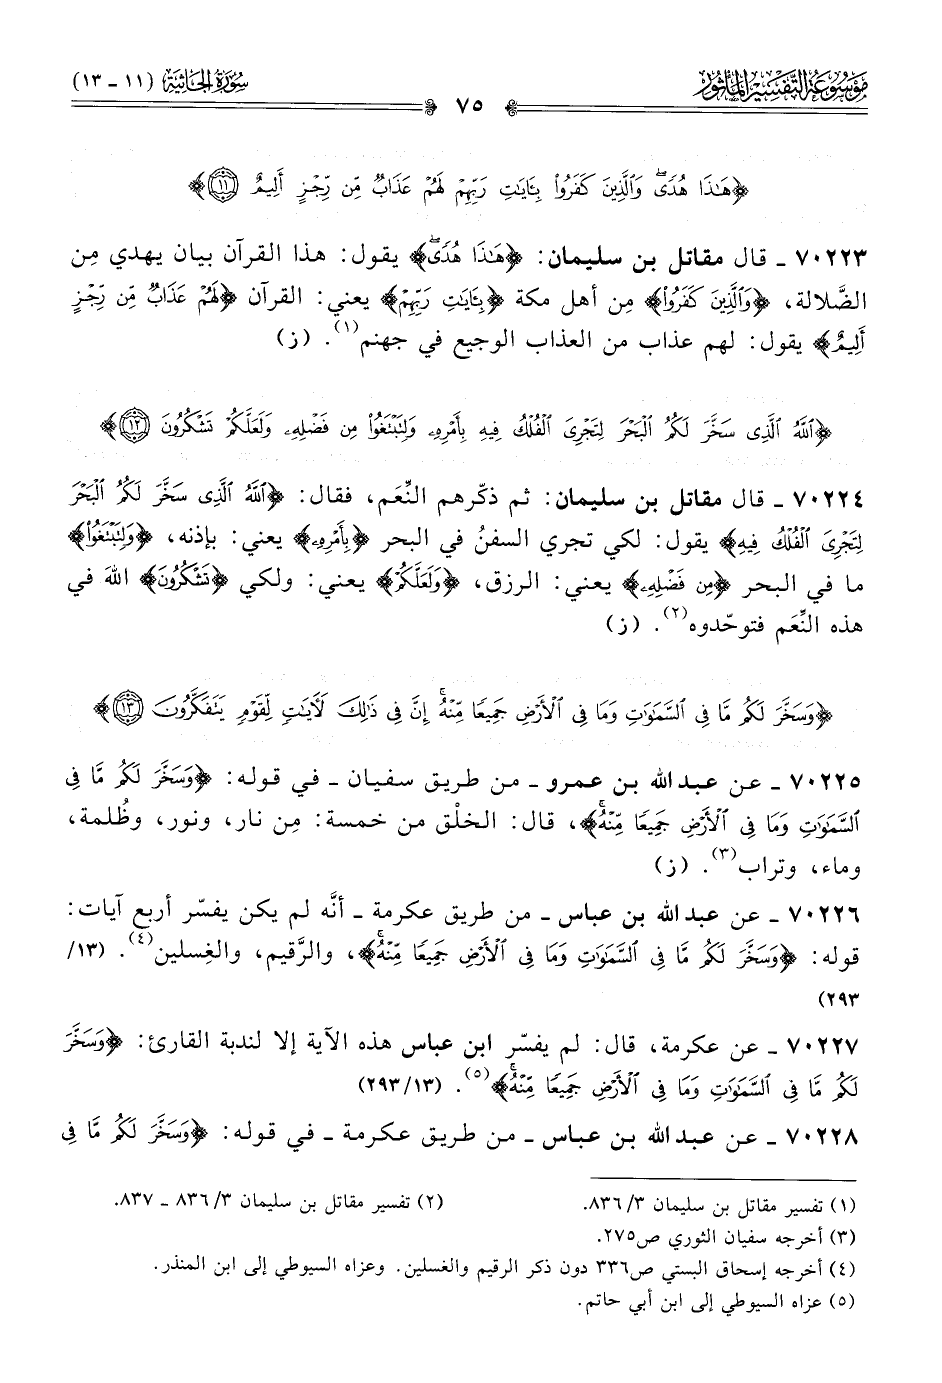 موسوعة التفسير المأثور
سورة الجاثية (١١ - ١٣)
٧٥
﴿هَٰذَا هُدًىۖ وَٱلَّذِينَ كَفَرُوا۟ بِـَٔايَٰتِ رَبِّهِمْ لَهُمْ عَذَابٌ مِّن رِّجْزٍ أَلِيمٌ ١١﴾
٧٠٢٢٣ ـ قال مقاتل بن سليمان: ﴿هَٰذَا هُدًىۖ﴾ يقول: هذا القرآن بيان يهدي مِن
الضَّلالة، ﴿وَٱلَّذِينَ كَفَرُوا۟﴾ مِن أهل مكة ﴿بِـَٔايَٰتِ رَبِّهِمْ﴾ يعني: القرآن ﴿لَهُمْ عَذَابٌ مِّن رِّجْزٍ
أَلِيمٌ﴾ يقول: لهم عذاب من العذاب الوجيع في جهنم(١). (ز)
﴿ٱللَّهُ ٱلَّذِى سَخَّرَ لَكُمُ ٱلْبَحْرَ لِتَجْرِىَ ٱلْفُلْكُ فِيهِ بِأَمْرِهِۦ وَلِتَبْتَغُوا۟ مِن فَضْلِهِۦ وَلَعَلَّكُمْ تَشْكُرُونَ ١٢﴾
٧٠٢٢٤ ـ قال مقاتل بن سليمان: ثم ذكّرهم النِّعَم، فقال: ﴿ٱللَّهُ ٱلَّذِى سَخَّرَ لَكُمُ ٱلْبَحْرَ
لِتَجْرِىَ ٱلْفُلْكُ فِيهِ﴾ يقول: لكي تجري السفنُ في البحر ﴿بِأَمْرِهِۦ﴾ يعني: بإذنه، ﴿وَلِتَبْتَغُوا۟﴾
ما في البحر ﴿مِن فَضْلِهِۦ﴾ يعني: الرزق، ﴿وَلَعَلَّكُمْ﴾ يعني: ولكي ﴿تَشْكُرُونَ﴾ اللهَ في
هذه النِّعَم فتوحّدوه(٢). (ز)
﴿وَسَخَّرَ لَكُم مَّا فِى ٱلسَّمَٰوَٰتِ وَمَا فِى ٱلْأَرْضِ جَمِيعًا مِّنْهُۚ إِنَّ فِى ذَٰلِكَ لَـَٔايَٰتٍ لِّقَوْمٍ يَتَفَكَّرُونَ ١٣﴾
٧٠٢٢٥ ـ عن عبد الله بن عمرو ـ من طريق سفيان ـ في قوله: ﴿وَسَخَّرَ لَكُم مَّا فِى
ٱلسَّمَٰوَٰتِ وَمَا فِى ٱلْأَرْضِ جَمِيعًا مِّنْهُۚ﴾، قال: الخلْق من خمسة: مِن نار، ونور، وظُلمة،
وماء، وتراب(٣). (ز)
٧٠٢٢٦ ـ عن عبد الله بن عباس ـ من طريق عكرمة ـ أنَّه لم يكن يفسّر أربع آيات:
قوله: ﴿وَسَخَّرَ لَكُم مَّا فِى ٱلسَّمَٰوَٰتِ وَمَا فِى ٱلْأَرْضِ جَمِيعًا مِّنْهُۚ﴾، والرَّقيم، والغِسلين(٤). (١٣/
٢٩٣)
٧٠٢٢٧ ـ عن عكرمة، قال: لم يفسّر ابن عباس هذه الآية إلا لندبة القارئ: ﴿وَسَخَّرَ
لَكُم مَّا فِى ٱلسَّمَٰوَٰتِ وَمَا فِى ٱلْأَرْضِ جَمِيعًا مِّنْهُۚ﴾(٥). (٢٩٣/١٣)
٧٠٢٢٨ ـ عن عبد الله بن عباس ـ من طريق عكرمة ـ في قوله: ﴿وَسَخَّرَ لَكُم مَّا فِى
(١) تفسير مقاتل بن سليمان ٣/ ٨٣٦.
(٢) تفسير مقاتل بن سليمان ٣/ ٨٣٦ ـ ٨٣٧.
(٣) أخرجه سفيان الثوري ص٢٧٥.
(٤) أخرجه إسحاق البستي ص٣٣٦ دون ذكر الرقيم والغسلين. وعزاه السيوطي إلى ابن المنذر.
(٥) عزاه السيوطي إلى ابن أبي حاتم.